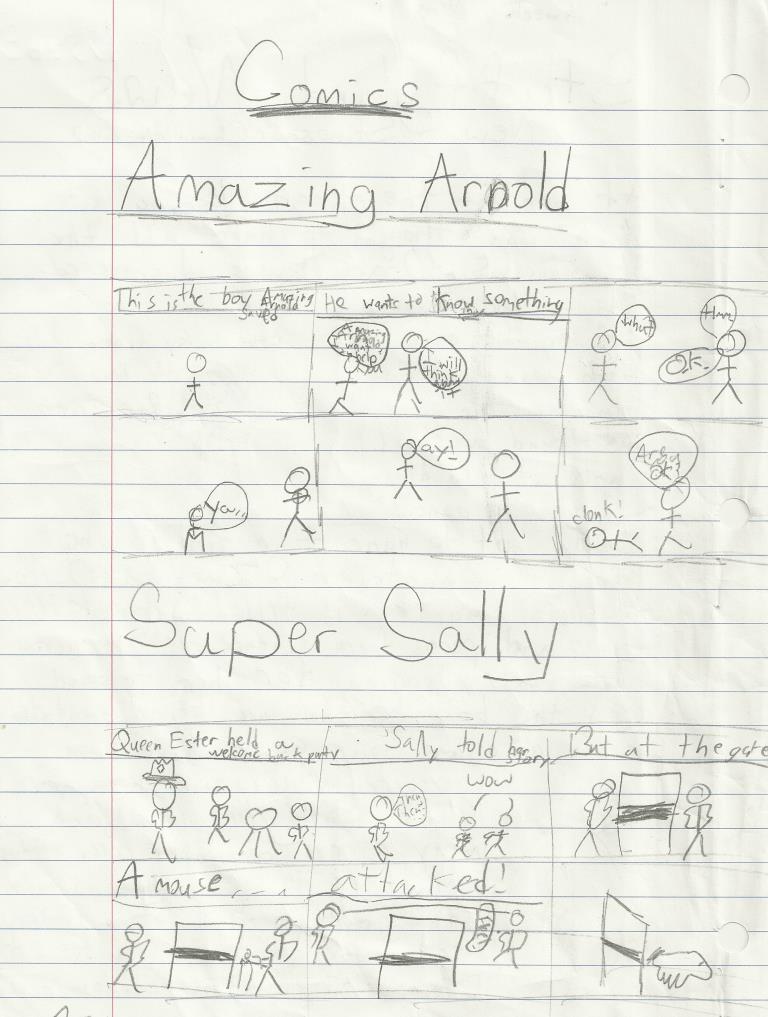 Comics
Amazing Arnold
This is the boy Amazing
Arnold
saved
He wants to know something
Amazing
Arnold
I want
help
I will
think
it
what
Hmm
OK.
You...
ay!
Argg
OK!
clonk!
Super Sally
Queen Ester held a
welcome back party
Sally told her
story
But at the gate
wow
Then
A mouse....
attacked!